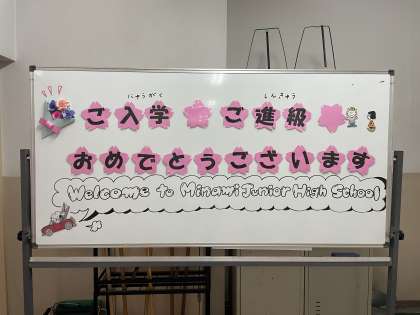 にゅうがく しんきゅう
ご入学 ご進級
おめでとうございます
Welcome to Minami Junior High School